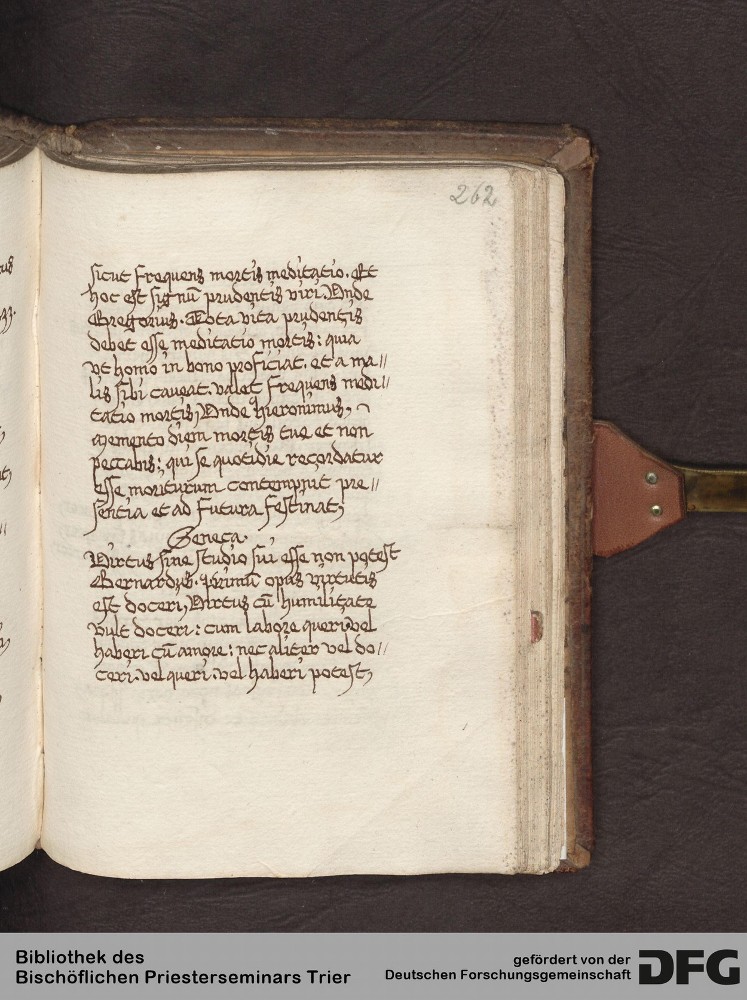 262
sicut frequens mortis meditatio. Et
hoc est signū prudentis viri. Vnde
Gregorius. Tota vita prudentis
debet esse meditatio mortis: quia
vt homo in bono proficiat. et a ma//
lis sibi caueat. valet frequens medi//
tatio mortis, Vnde Hieronimus,
Memento diem mortis tue et non
peccabis: qui se quotidie recordatur
esse moriturum contempnit pre//
sentia et ad futura festinat,
Seneca.
Virtus sine studio sui esse non potest
Bernardus. Primū opus virtutis
est doceri, Virtus cū humilitate
vult doceri: cum labore queri. vel
haberi cū amore: nec aliter vel do//
ceri. vel queri. vel haberi potest,
Bibliothek des
Bischöflichen Priesterseminars Trier
gefördert von der
Deutschen Forschungsgemeinschaft
DFG